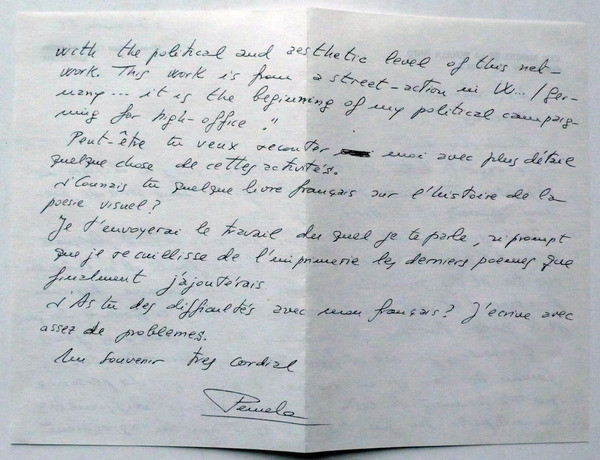 with the political and aesthetic level of this net-
work. This work is from a street-action in W... / Ger-
many... it is the beginning of my political campaig-
ning for high-office."
Peut-être tu veux recouter moi avec plus détail
quelque chose de cettes activités.
¿Connais tu quelque livre français sur l'histoire de la
poesie visuel?
Je t'envoyerai le travail du quel je te parle, si prompt
que je recuillisse de l'imprimerie les derniers poemes que
finalment j'ajoutérais.
¿As tu des difficultés avec mon français? J'ecrive avec
assez de problemes.
Un souvenir tres cordial